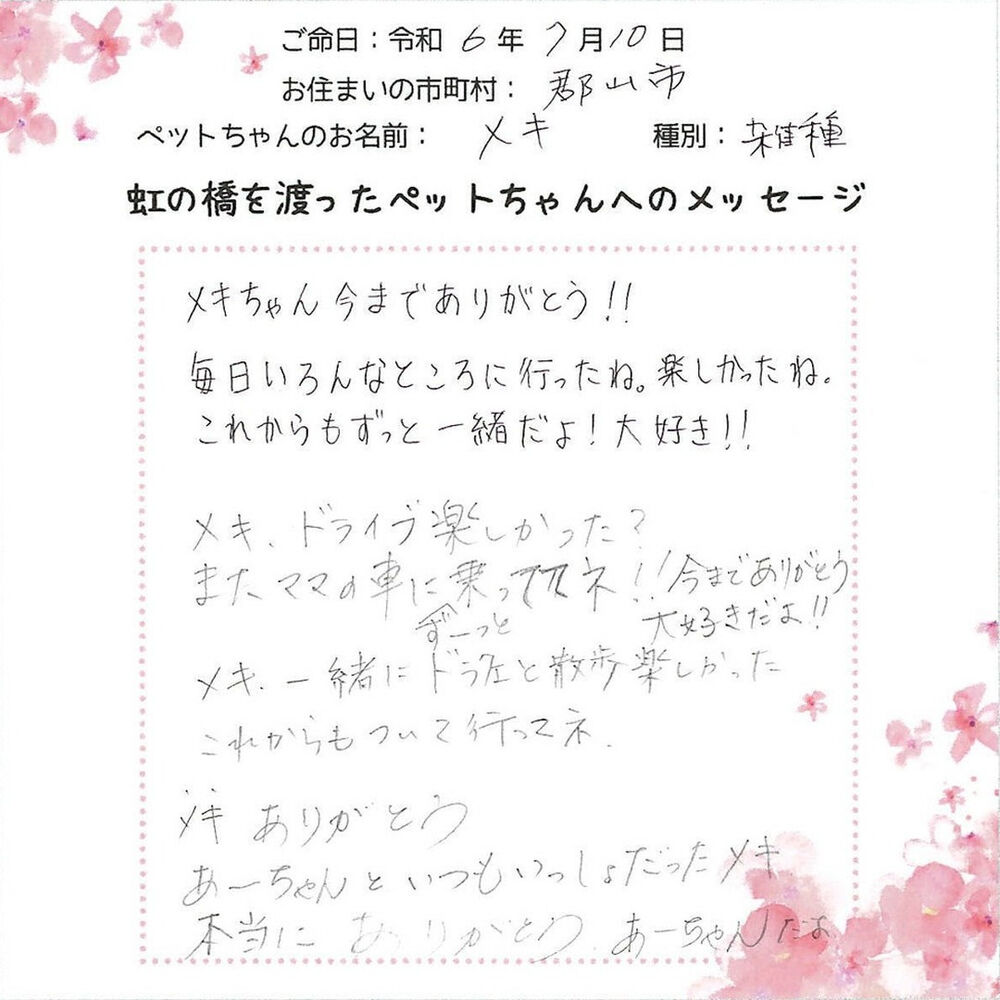 ご命日：令和 6 年 7 月 10 日
お住まいの市町村： 郡山市
ペットちゃんのお名前： メキ 種別： 雑種
虹の橋を渡ったペットちゃんへのメッセージ
メキちゃん今までありがとう!!
毎日いろんなところに行ったね。楽しかったね。
これからもずっと一緒だよ!大好き!!
メキ、ドライブ楽しかった?
またママの車に乗ってネ!!今までありがとう
大好きだよ!!
ずーっと
メキ、一緒にドライと散歩楽しかった
これからもついて行ってネ.
メキ ありがとう
あーちゃんといつもいっしょだったメキ
本当に ありがとう. あーちゃんだよ